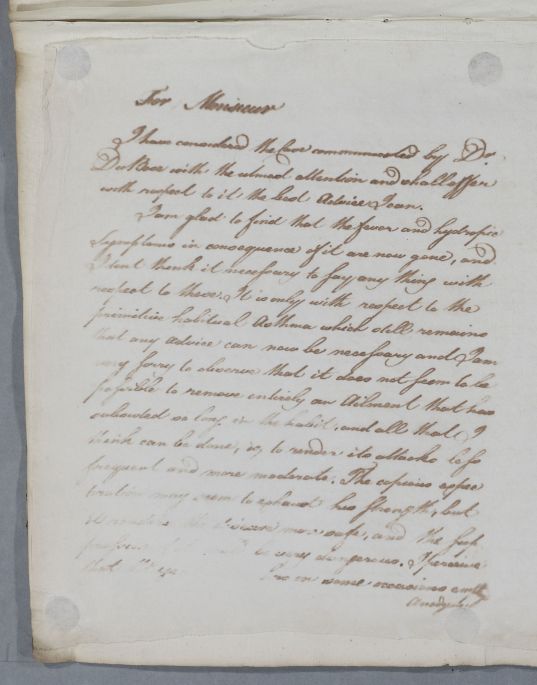 For Monsieur
I have considered the case communicated by Dr.
DuBoee with the utmost attention and shall offer
with respect to it the best Advice I can.
I am glad to find that the fever and hydropic
Symptoms in consequence of it are now gone, and
I dont think it necessary to say any thing with
respect to these. It is only with respect to the
primitive habitual Asthma which still remains
that any advice can now be necessary and I am
very sorry to observe that it does not seem to be
possible to remove entirely an Ailment that has
subsisted so long in the habit, and all that I
think can be done, is, to render its attacks less
frequent and more moderate. The copious expec
toration may seem to exhaust his strength, but
it renders the disease more safe, and the sup
pression be very dangerous. I perceive
that on some occasions